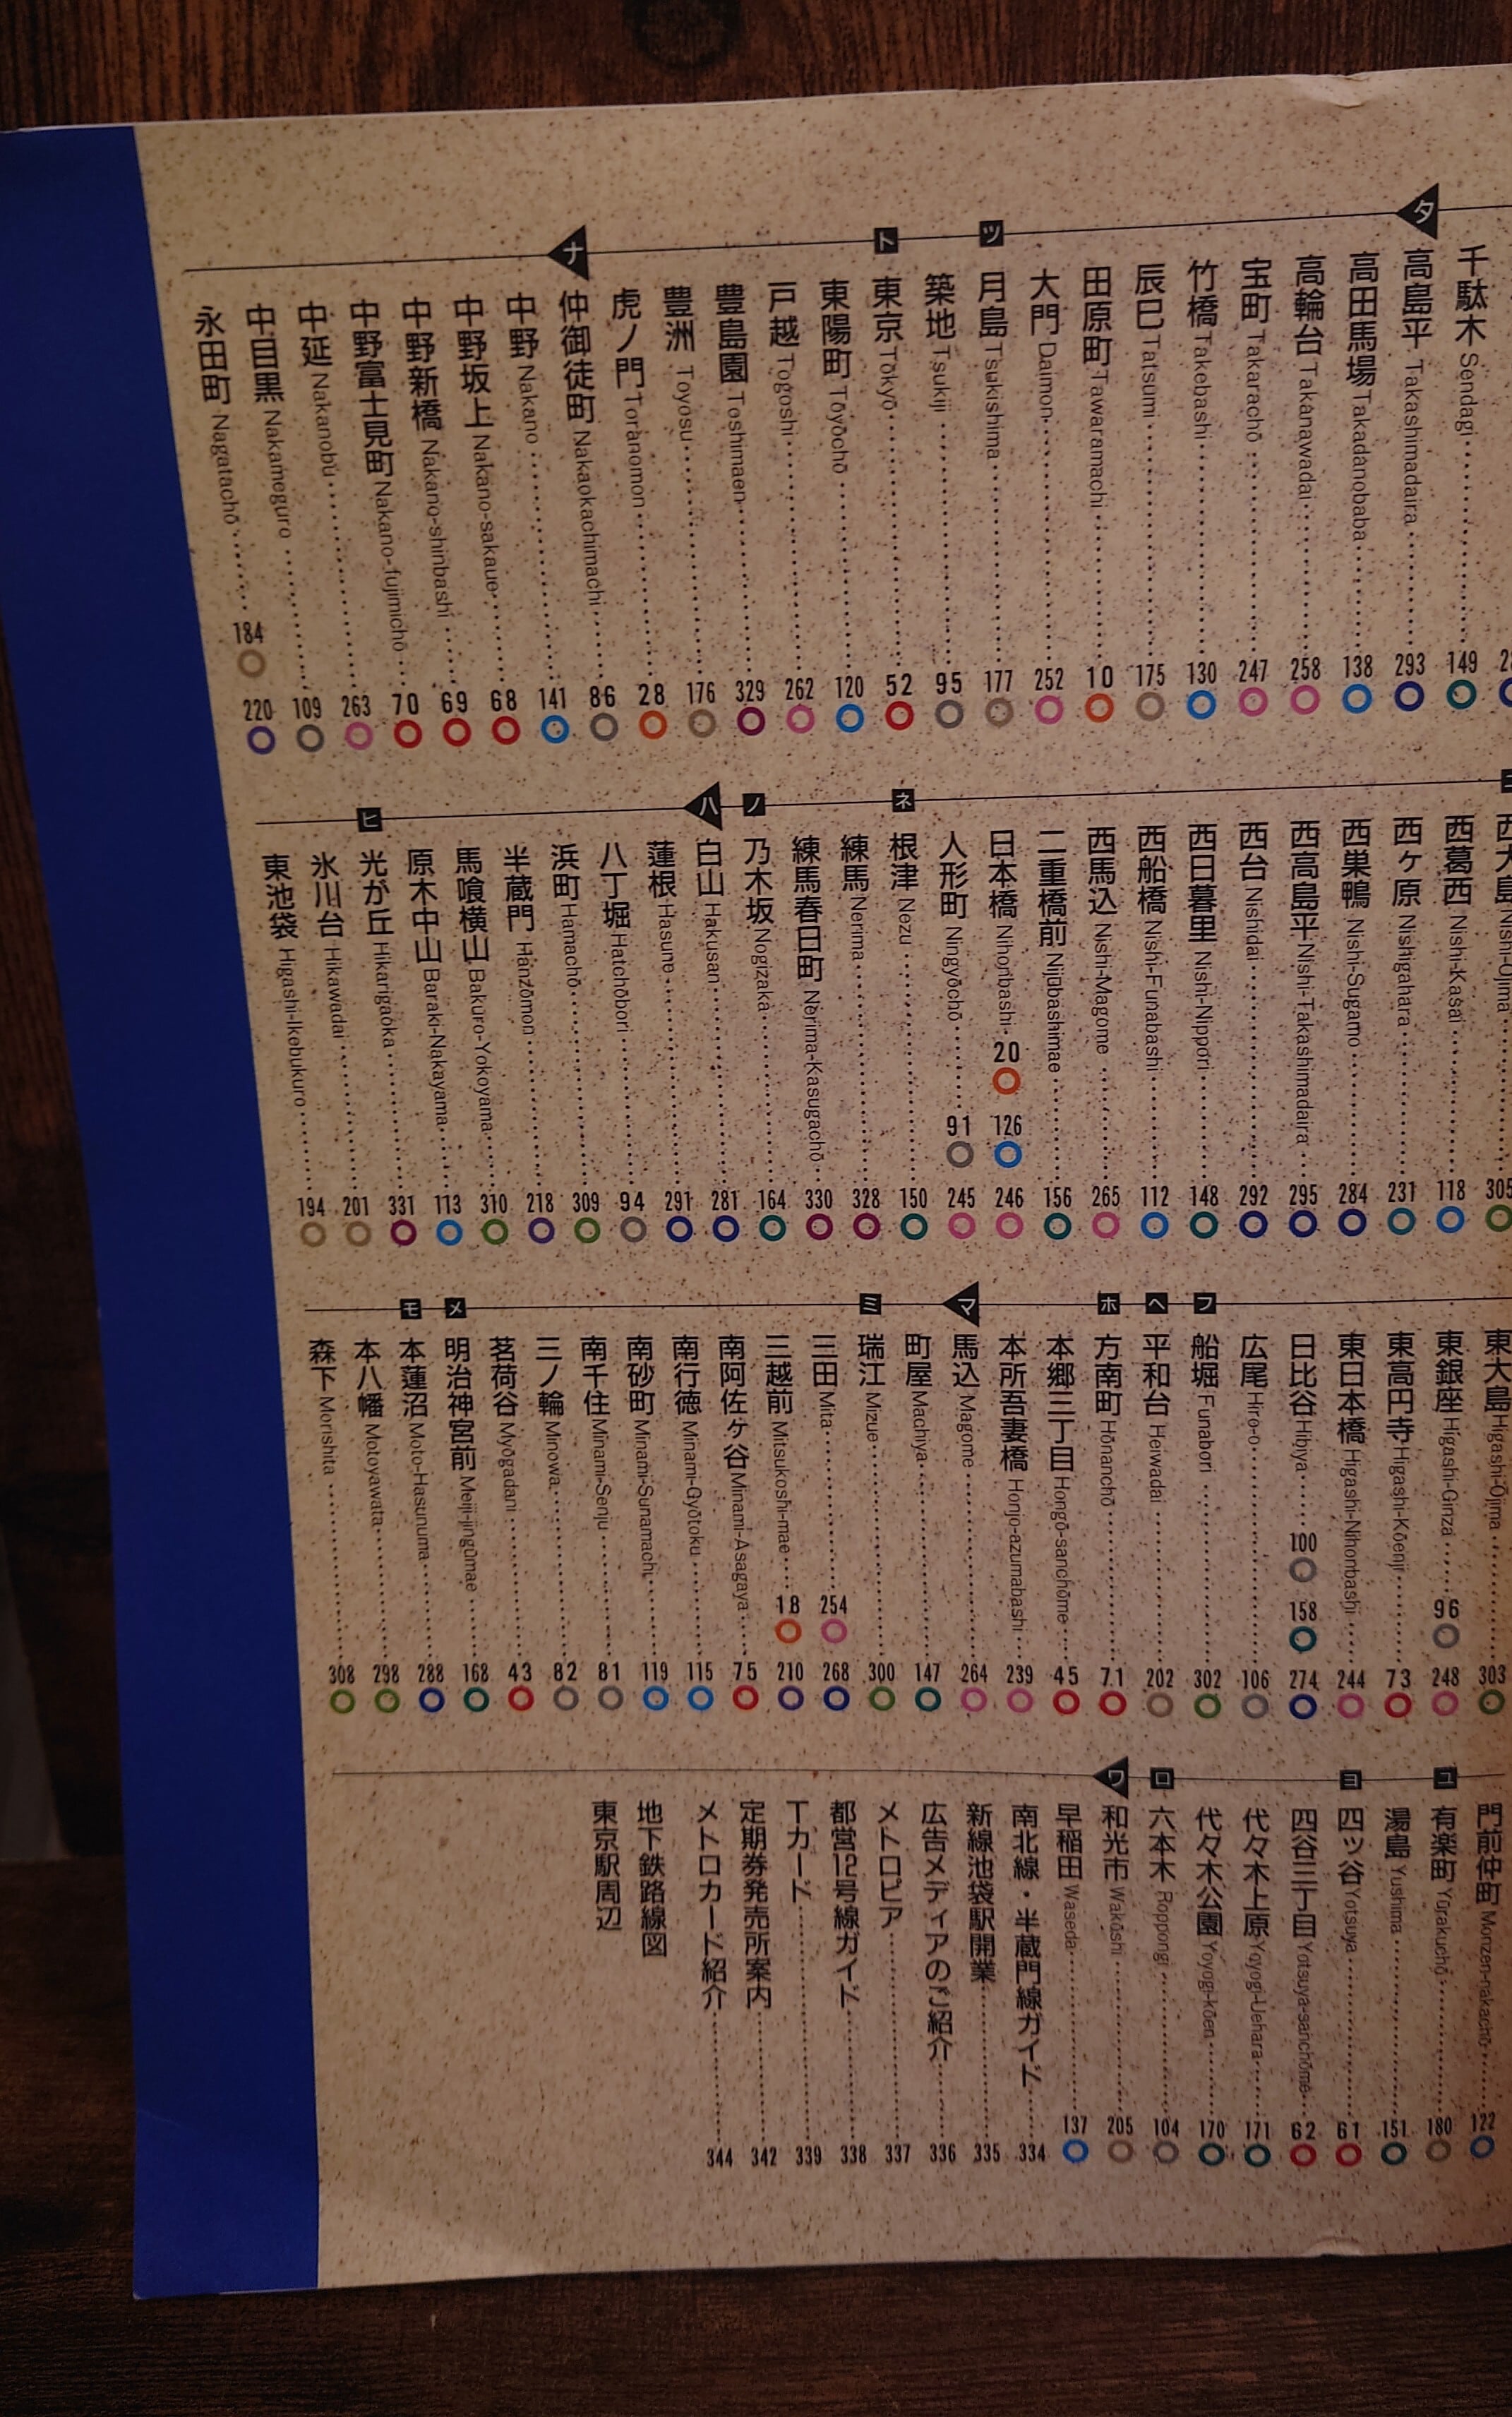 タ
千駄木 Sendagi 149
高島平 Takashimadaira 293
高田馬場 Takadanobaba 138
高輪台 Takanawadai 258
宝町 Takarachō 247
竹橋 Takebashi 130
辰巳 Tatsumi 175
田原町 Tawaramachi 10
大門 Daimon 252
ツ
月島 Tsukishima 177
築地 Tsukiji 95
ト
東京 Tōkyō 52
東陽町 Tōyōchō 120
戸越 Togoshi 262
豊島園 Toshimaen 329
豊洲 Toyosu 176
虎ノ門 Toranomon 28
ナ
仲御徒町 Nakaokachimachi 86
中野 Nakano 141
中野坂上 Nakano-sakaue 68
中野新橋 Nakano-shinbashi 69
中野富士見町 Nakano-fujimichō 70
中延 Nakanobu 263
中目黒 Nakameguro 109
永田町 Nagatachō 184 220
西大島 Nishi-Ojima 305
西葛西 Nishi-Kasai 118
西ケ原 Nishigahara 231
西巣鴨 Nishi-Sugamo 284
西高島平 Nishi-Takashimadaira 295
西台 Nishidai 292
西日暮里 Nishi-Nippori 148
西船橋 Nishi-Funabashi 112
西馬込 Nishi-Magome 265
二重橋前 Nijūbashimae 156
日本橋 Nihonbashi 20 126 246
人形町 Ningyōchō 91 245
ネ
根津 Nezu 150
練馬 Nerima 328
練馬春日町 Nerima-Kasugachō 330
ノ
乃木坂 Nogizaka 164
ハ
白山 Hakusan 281
蓮根 Hasune 291
八丁堀 Hatchōbori 94
浜町 Hamachō 309
半蔵門 Hanzōmon 218
馬喰横山 Bakuro-Yokoyama 310
原木中山 Baraki-Nakayama 113
ヒ
光が丘 Hikarigaoka 331
氷川台 Hikawadai 201
東池袋 Higashi-Ikebukuro 194
東大島 Higashi-Ojima 303
東銀座 Higashi-Ginza 96 248
東高円寺 Higashi-Kōenji 73
東日本橋 Higashi-Nihonbashi 244
日比谷 Hibiya 100 158 274
広尾 Hiro-o 106
フ
船堀 Funabori 302
ヘ
平和台 Heiwadai 202
ホ
方南町 Hōnanchō 71
本郷三丁目 Hongō-sanchōme 45
本所吾妻橋 Honjo-azumabashi 239
マ
馬込 Magome 264
町屋 Machiya 147
ミ
瑞江 Mizue 300
三田 Mita 254 268
三越前 Mitsukoshi-mae 18 210
南阿佐ケ谷 Minami-Asagaya 75
南行徳 Minami-Gyōtoku 115
南砂町 Minami-Sunamachi 119
南千住 Minami-Senju 81
三ノ輪 Minowa 82
茗荷谷 Myōgadani 43
メ
明治神宮前 Meiji-jingūmae 168
モ
本蓮沼 Moto-Hasunuma 288
本八幡 Motoyawata 298
森下 Morishita 308
門前仲町 Monzen-nakachō 122
ユ
有楽町 Yūrakuchō 180
湯島 Yushima 151
ヨ
四ツ谷 Yotsuya 61
四谷三丁目 Yotsuya-sanchōme 62
代々木上原 Yoyogi-Uehara 171
代々木公園 Yoyogi-kōen 170
ロ
六本木 Roppongi 104
ワ
和光市 Wakōshi 205
早稲田 Waseda 137
南北線・半蔵門線ガイド 334
新線池袋駅開業 335
広告メディアのご紹介 336
メトロピア 337
都営12号線ガイド 338
Tカード 339
定期券発売所案内 342
メトロカード紹介 344
地下鉄路線図
東京駅周辺